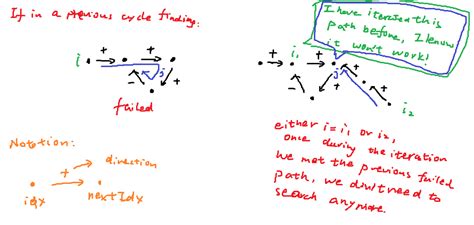 If in a previous cycle finding:
i
+
+
-
+
j
failed
I have iterated this
path before, I know
it won't work!
i1
+
+
-
+
j
+
+
i2
either i=i1 or i2,
once during the iteration
we met the previous failed
path, we don't need to
search anymore.
Notation:
+
direction
idx
nextIdx